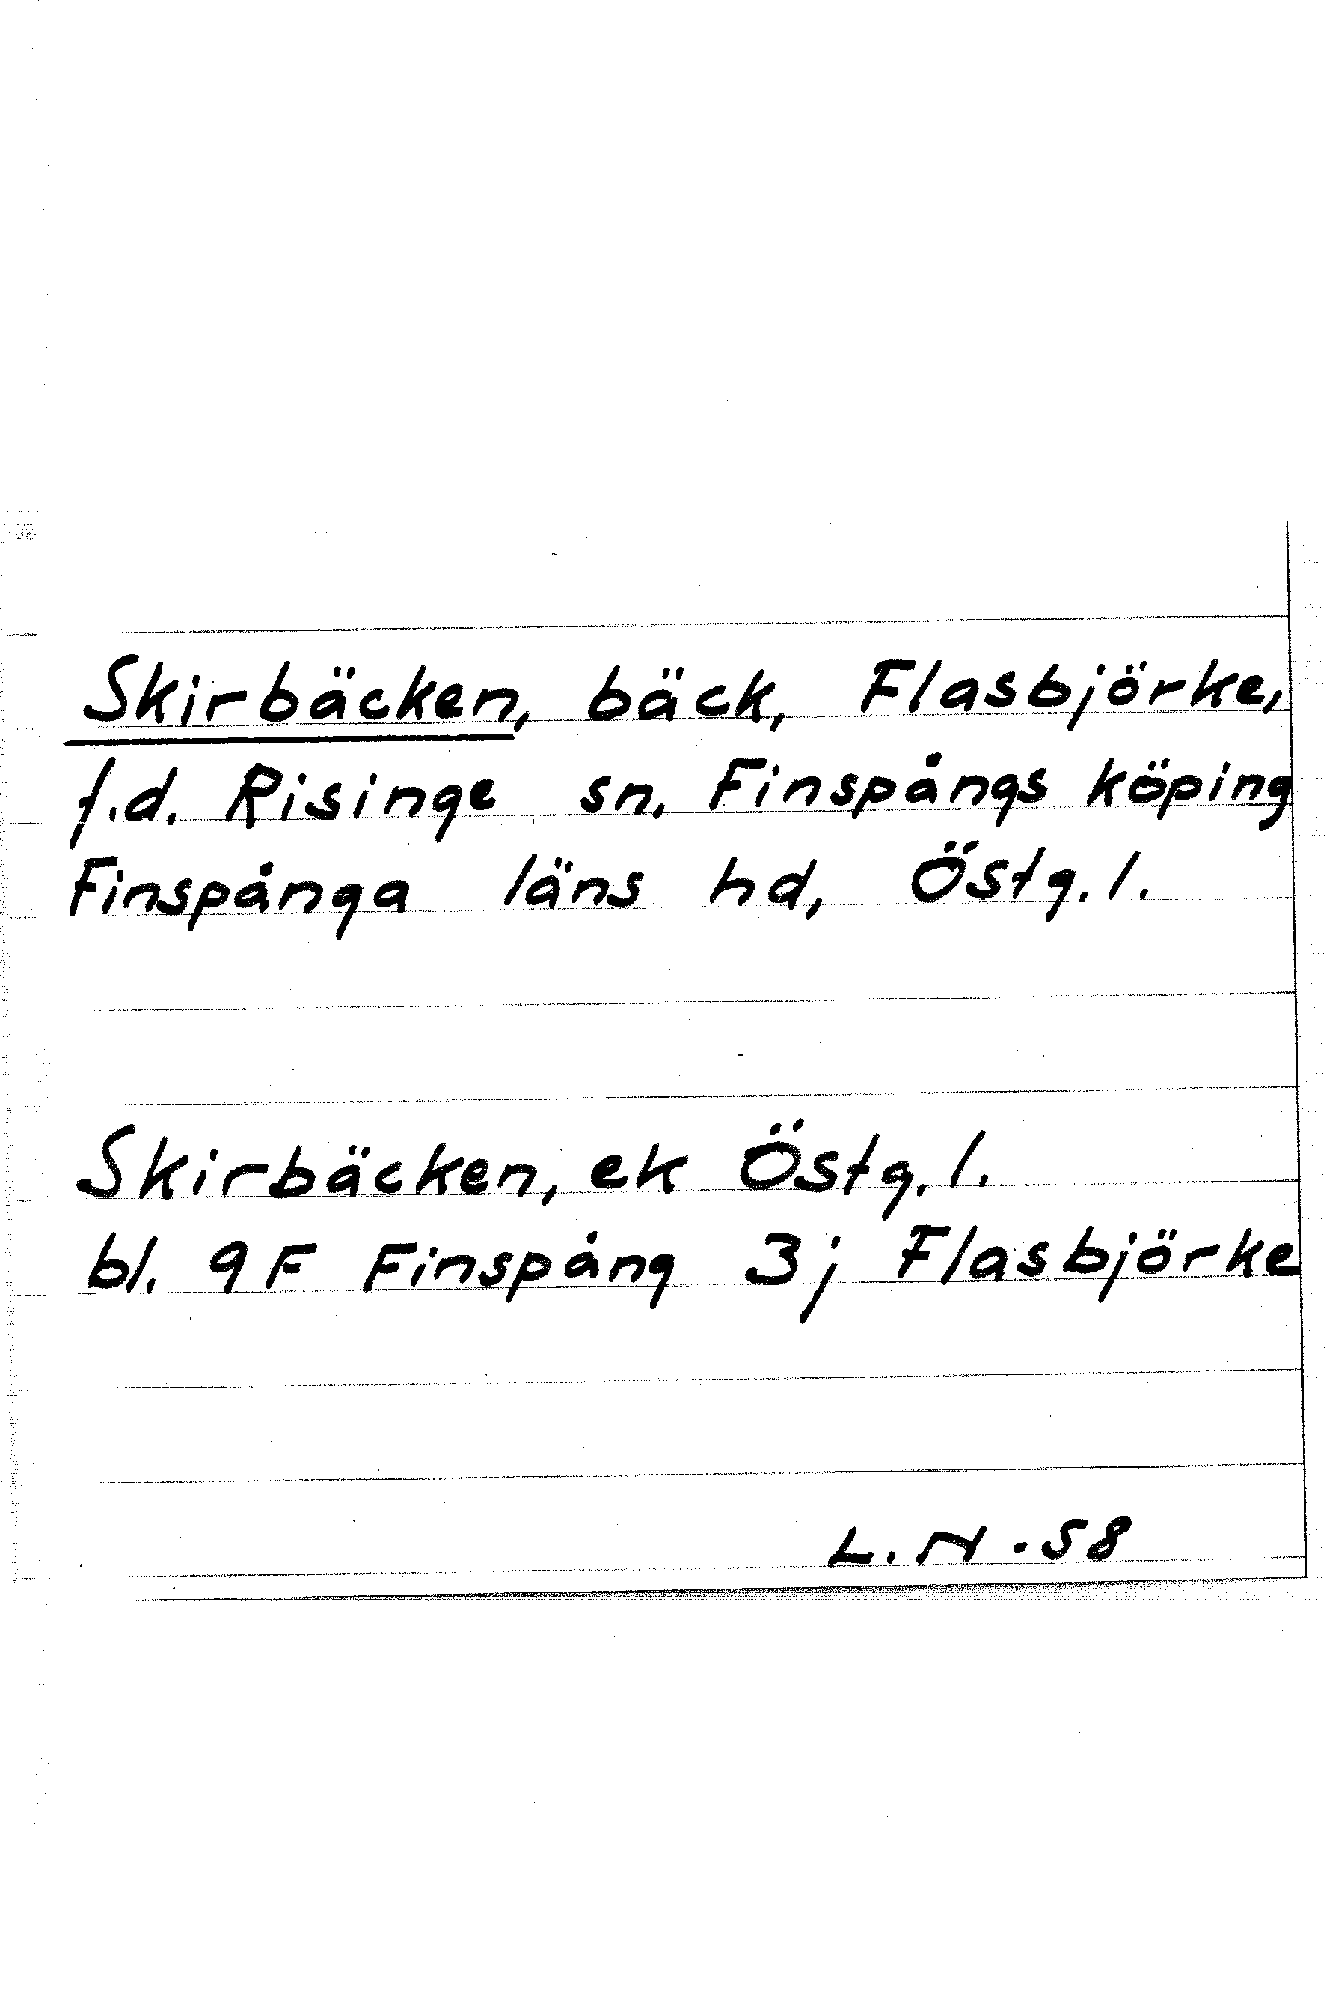 Skirbäcken, bäck, Flasbjörke,
f.d. Risinge sn, Finspångs köping
Finspånga läns hd, Östg. l.
Skirbäcken, ek Östg. l.
bl. 9F Finspång 3j Flasbjörke
L. N. 58